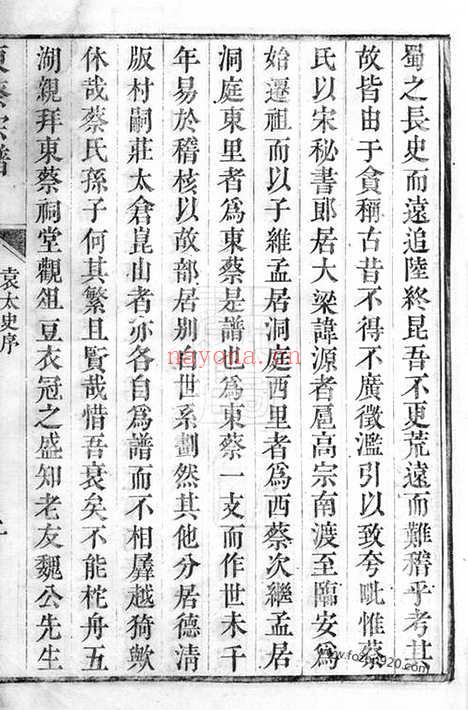 蜀之長史而遠追陸終昆吾不更荒遠而難稽乎考其
故皆由于貪稱古昔不得不廣徵濫引以致夸毗惟蔡
氏以宋秘書郎居大梁諱源者扈高宗南渡至臨安爲
始遷祖而以子維孟居洞庭西里者爲西蔡次繼孟居
洞庭東里者爲東蔡是譜也爲東蔡一支而作世未千
年易於稽核以故部居别白世系劃然其他分居德清
版村嗣莊太倉崑山者亦各自爲譜而不相羼越猗歟
休哉蔡氏孫子何其繁且賢哉惜吾衰矣不能柁舟五
湖親拜東蔡祠堂觀俎豆衣冠之盛知老友魏公先生
東蔡宗譜
袁太史序
nayona.cn
www.fozhu920.com